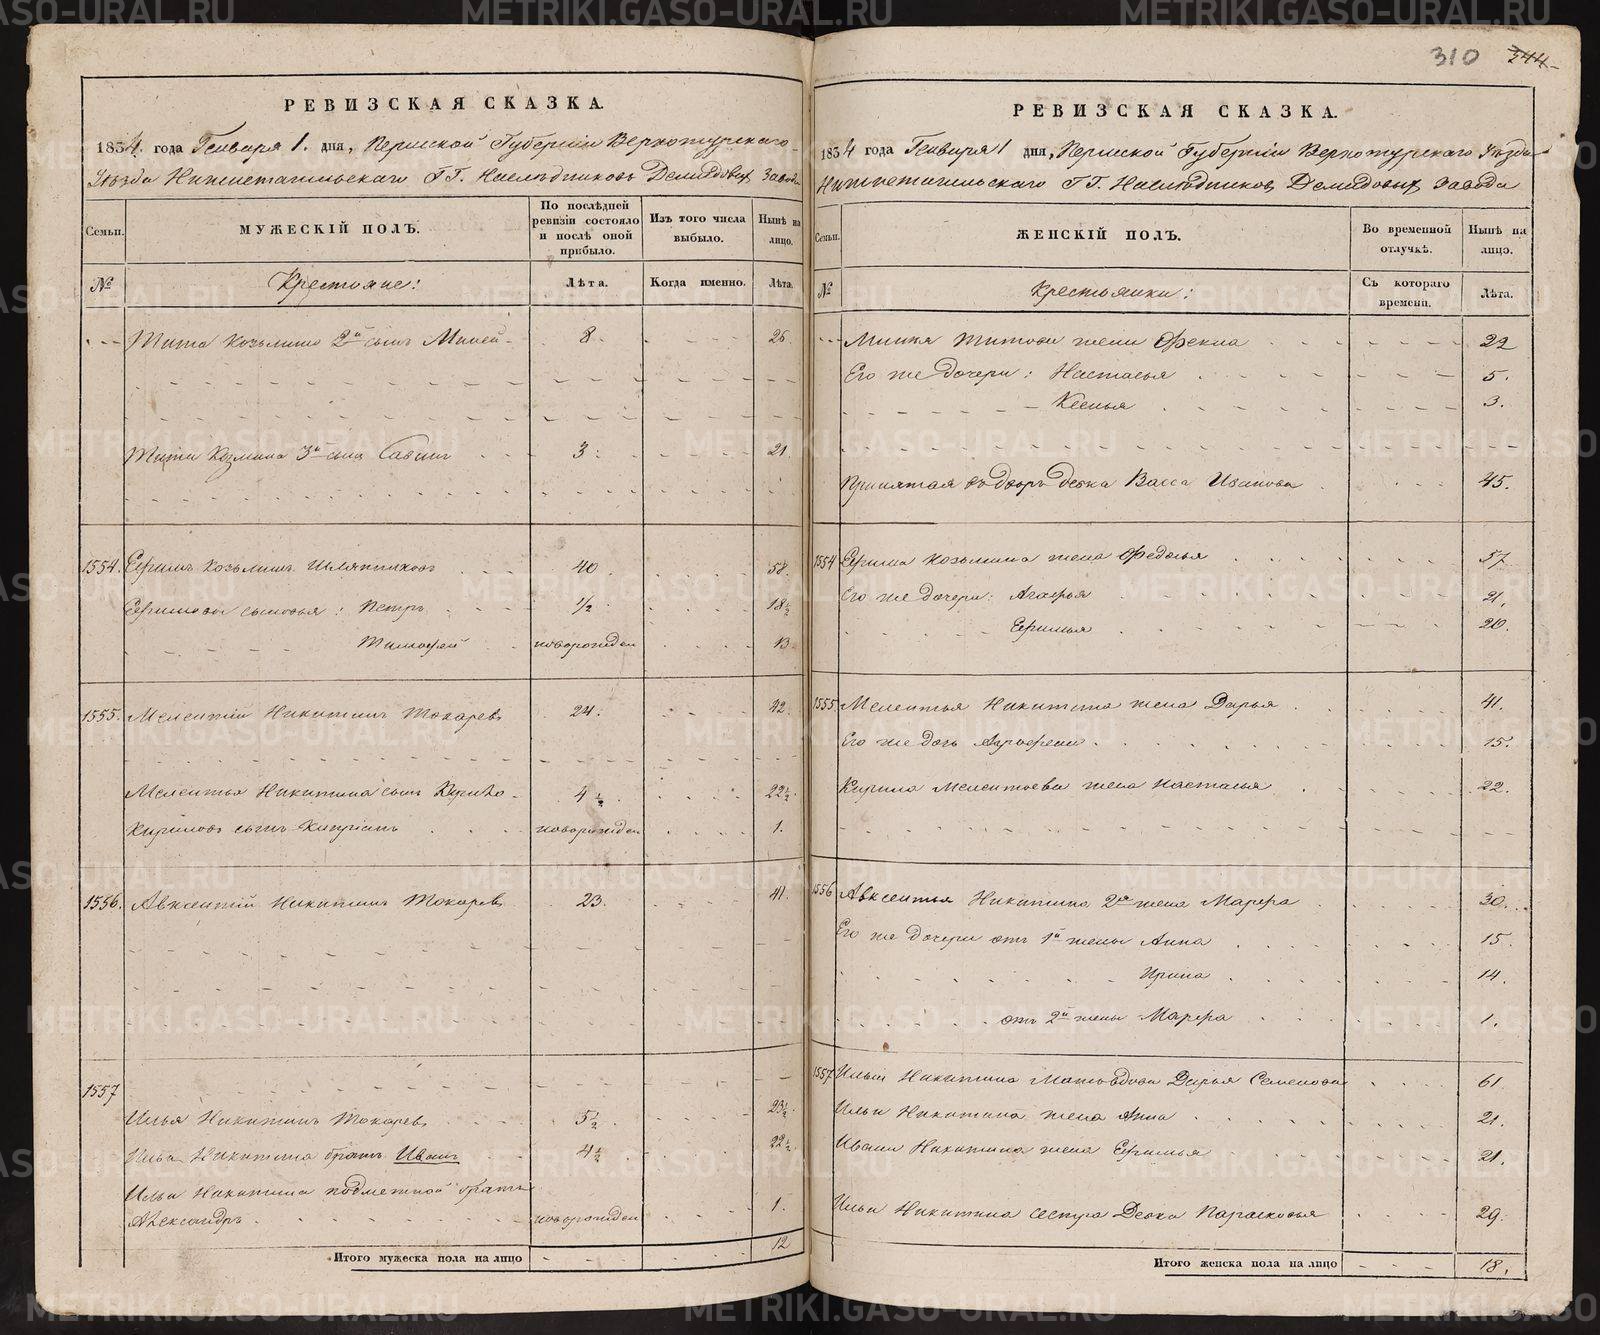 310 244
РЕВИЗСКАЯ СКАЗКА.
1834. года Генваря 1. дня, Пермской Губернии Верхотурскаго
Уѣзда Нижнетагильскаго ГГ. Наслѣдниковъ Демидовыхъ Завода
Семьи. МУЖЕСКІЙ ПОЛЪ. По послѣдней ревизіи состояло и послѣ оной прибыло. Изъ того числа выбыло. Нынѣ на лицо.
№ Крестьяне: Лѣта. Когда именно. Лѣта.
Тита Козьмина 2й сынъ Миней 8 26.
Тита Козмина 3й сынъ Савинъ 3. 21.
1554. Ефимъ Козьминъ Шляпниковъ 40 58.
Ефимовы сыновья: Петръ 1/2 18 1/2
Тимофей новорожден 13
1555. Мелентій Никитинъ Токаревъ 24. 42.
Мелентья Никитина сынъ Кирило 4 1/2 22 1/2.
Кириловъ сынъ Кипріянъ новорожден 1.
1556. Авксентій Никитинъ Токаревъ 23. 41.
1557
Илья Никитинъ Токаревъ 5 1/2 23 1/2.
Ильи Никитина братъ Иванъ 4 1/2 22 1/2
Ильи Никитина подметной братъ
Александръ новорожден 1.
Итого мужеска пола на лицо 12
РЕВИЗСКАЯ СКАЗКА.
1834 года Генваря 1 дня, Пермской Губерніи Верхотурскаго Уѣзда
Нижнетагильскаго ГГ. Наслѣдниковъ Демидовыхъ Завода
Семьи. ЖЕНСКІЙ ПОЛЪ. Во временной отлучкѣ. Нынѣ на лицо.
№ Крестьянки: Съ котораго времени. Лѣта.
Минея Титова жена Фекла 22
Его же дочери: Настасья 5.
Ксенья 3.
Принятая въ дворъ девка Васса Иванова 45.
1554 Ефима Козьмина жена Федосья 57
Его же дочери: Агафья 21.
Ефимья 20.
1555 Мелентья Никитина жена Дарья 41.
Его же дочь Агрофена 15.
Кирила Мелентьева жена Настасья 22.
1556 Авксентья Никитина 2я жена Марфа 30.
Его же дочери отъ 1й жены Анна 15.
Ирина 14.
отъ 2й жены Марфа 1.
1557 Ильи Никитина Дарья Семенова 61
Ильи Никитина жена Анна 21.
Ивана Никитина жена Ефимья 21.
Ильи Никитина сестра Девка Парасковья 29.
Итого женска пола на лицо 18.
METRIKI.GASO-URAL.RU